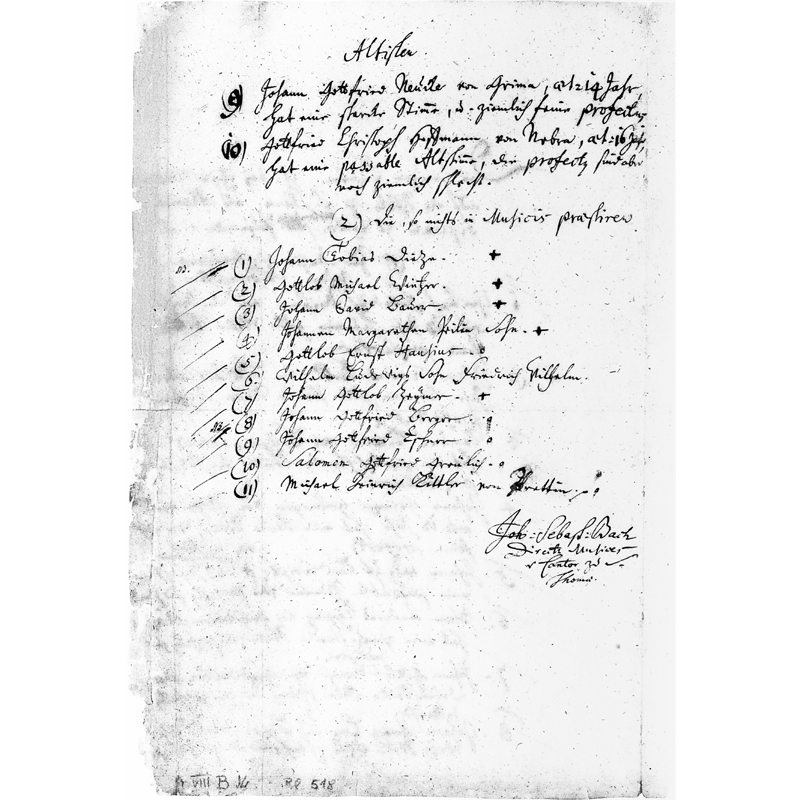 Altisten
9) Johann Gottfried Neücke von Grima, aet: 14 Jahr,
hat eine starcke Stimme, u. ziemlich feine profectus
10) Gottfried Christoph Hoffmann von Nebra, aet: 16 Jahr,
hat eine passable Altstimme, die profectus sind aber
noch ziemlich schlecht.
2) Die, so nichts in Musicis praestiren
NB. 1) Johann Tobias Dietze. +
2) Gottlob Michael Wintzer. +
3) Johann David Bauer. +
4) Johannen Margarethen Pezolin Sohn. +
5) Gottlob Ernst Hausius. o
6) Wilhelm Ludewigs Sohn Friedrich Wilhelm.
7) Johann Gottlob Zeymer. +
8) Johann Gottfried Berger. o
NB 9) Johann Gottfried Eschner. o
10) Salomon Gottfried Greülich. o
11) Michael Heinrich Kittler von Prettin. o
Joh: Sebast: Bach
Direct: Musices
u Cantor zu S.
Thomae.
VIII B. RP 518